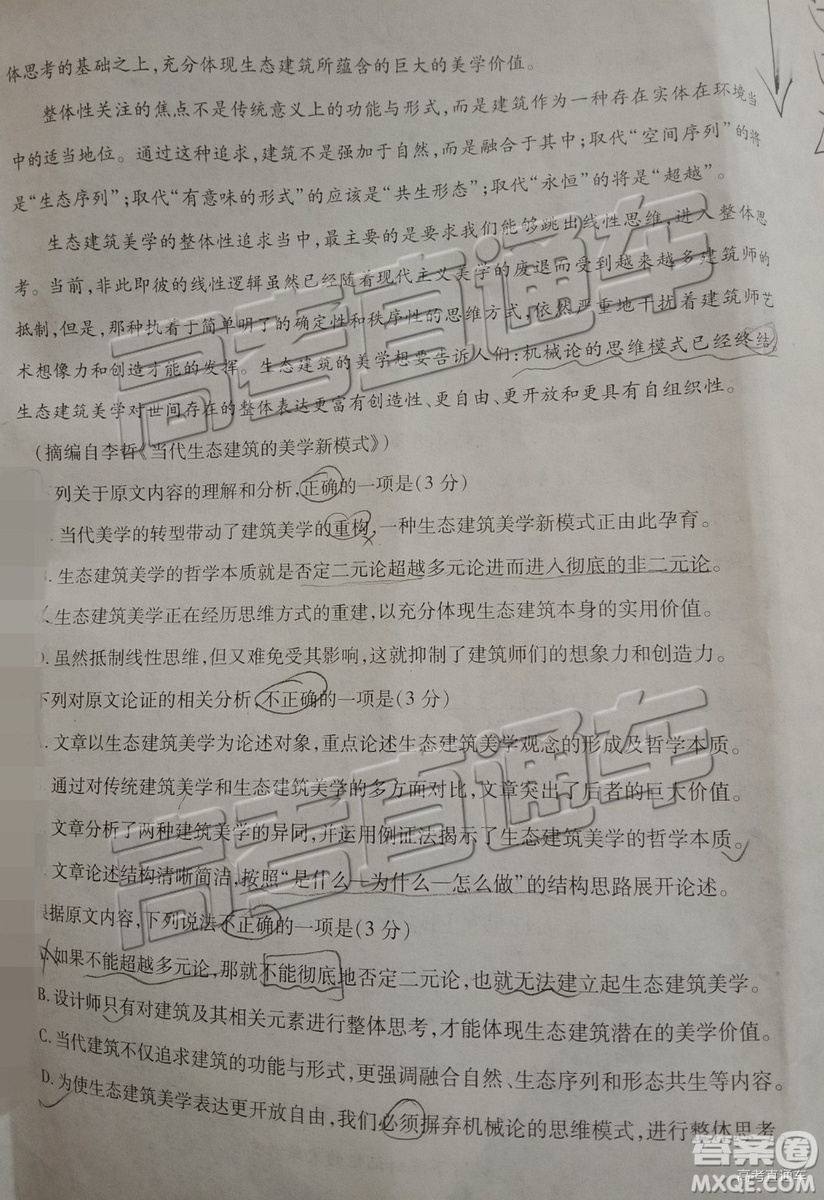 体思考的基础之上，充分体现生态建筑所蕴含的巨大的美学价值。
整体性关注的焦点不是传统意义上的功能与形式，而是建筑作为一种存在实体在环境当
中的适当地位。通过这种追求，建筑不是强加于自然，而是融合于其中；取代“空间序列”的将
是“生态序列”；取代“有意味的形式”的应该是“共生形态”；取代“永恒”的将是“超越”。
生态建筑美学的整体性追求当中，最主要的是要求我们能够跳出线性思维，进入整体思
考。当前，非此即彼的线性逻辑虽然已经随着现代主义美学的废退而受到越来越多建筑师的
抵制，但是，那种执着于简单明了的确定性和秩序性的思维方式，依然严重地干扰着建筑师艺
术想像力和创造才能的发挥。生态建筑的美学想要告诉人们：机械论的思维模式已经终结，
生态建筑美学对世间存在的整体表达更富有创造性、更自由、更开放和更具有自组织性。
（摘编自李哲《当代生态建筑的美学新模式》）
列关于原文内容的理解和分析，正确的一项是（3分）
当代美学的转型带动了建筑美学的重构，一种生态建筑美学新模式正由此孕育。
生态建筑美学的哲学本质就是否定二元论超越多元论进而进入彻底的非二元论。
生态建筑美学正在经历思维方式的重建，以充分体现生态建筑本身的实用价值。
D. 虽然抵制线性思维，但又难免受其影响，这就抑制了建筑师们的想象力和创造力。
下列对原文论证的相关分析，不正确的一项是（3分）
文章以生态建筑美学为论述对象，重点论述生态建筑美学观念的形成及哲学本质。
通过对传统建筑美学和生态建筑美学的多方面对比，文章突出了后者的巨大价值。
文章分析了两种建筑美学的异同，并运用例证法揭示了生态建筑美学的哲学本质。
文章论述结构清晰简洁，按照“是什么—为什么—怎么做”的结构思路展开论述。
根据原文内容，下列说法不正确的一项是（3分）
如果不能超越多元论，那就不能彻底地否定二元论，也就无法建立起生态建筑美学。
B. 设计师只有对建筑及其相关元素进行整体思考，才能体现生态建筑潜在的美学价值。
C. 当代建筑不仅追求建筑的功能与形式，更强调融合自然、生态序列和形态共生等内容。
D. 为使生态建筑美学表达更开放自由，我们必须摒弃机械论的思维模式，进行整体思考
高考直通车
高考直通车
答案圈
高考直通车
MXQE.COM